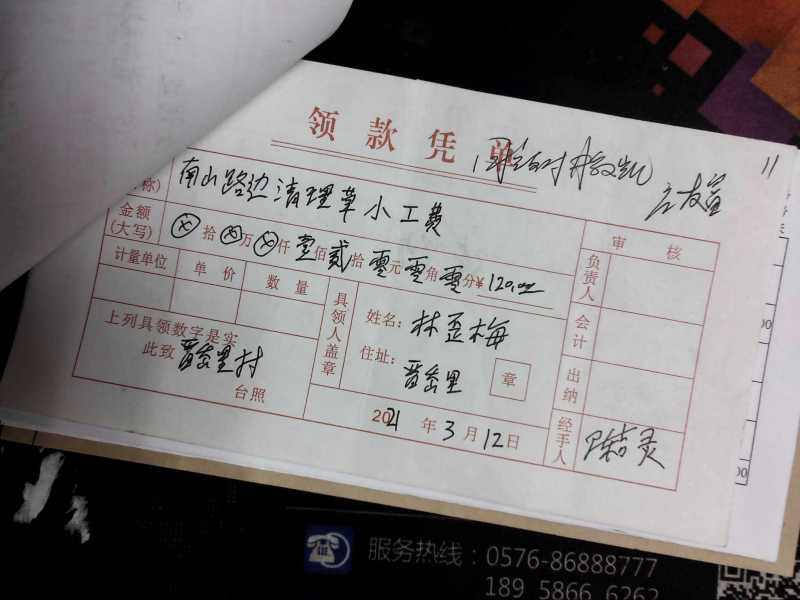 领款凭单
11
称)
南山路边清理草小工费
金额
(大写)
ⓧ拾ⓧ万ⓧ仟壹佰贰拾零元零角零分¥120.00
计量单位 单价 数量
上列具领数字是实
此致 晋岙里村
台照
具领人盖章
姓名: 林歪梅
住址: 晋岙里
章
2021年3月12日
审核
负责人
会计
出纳
经手人
00
00
服务热线:0576-86888777
189 5866 6262